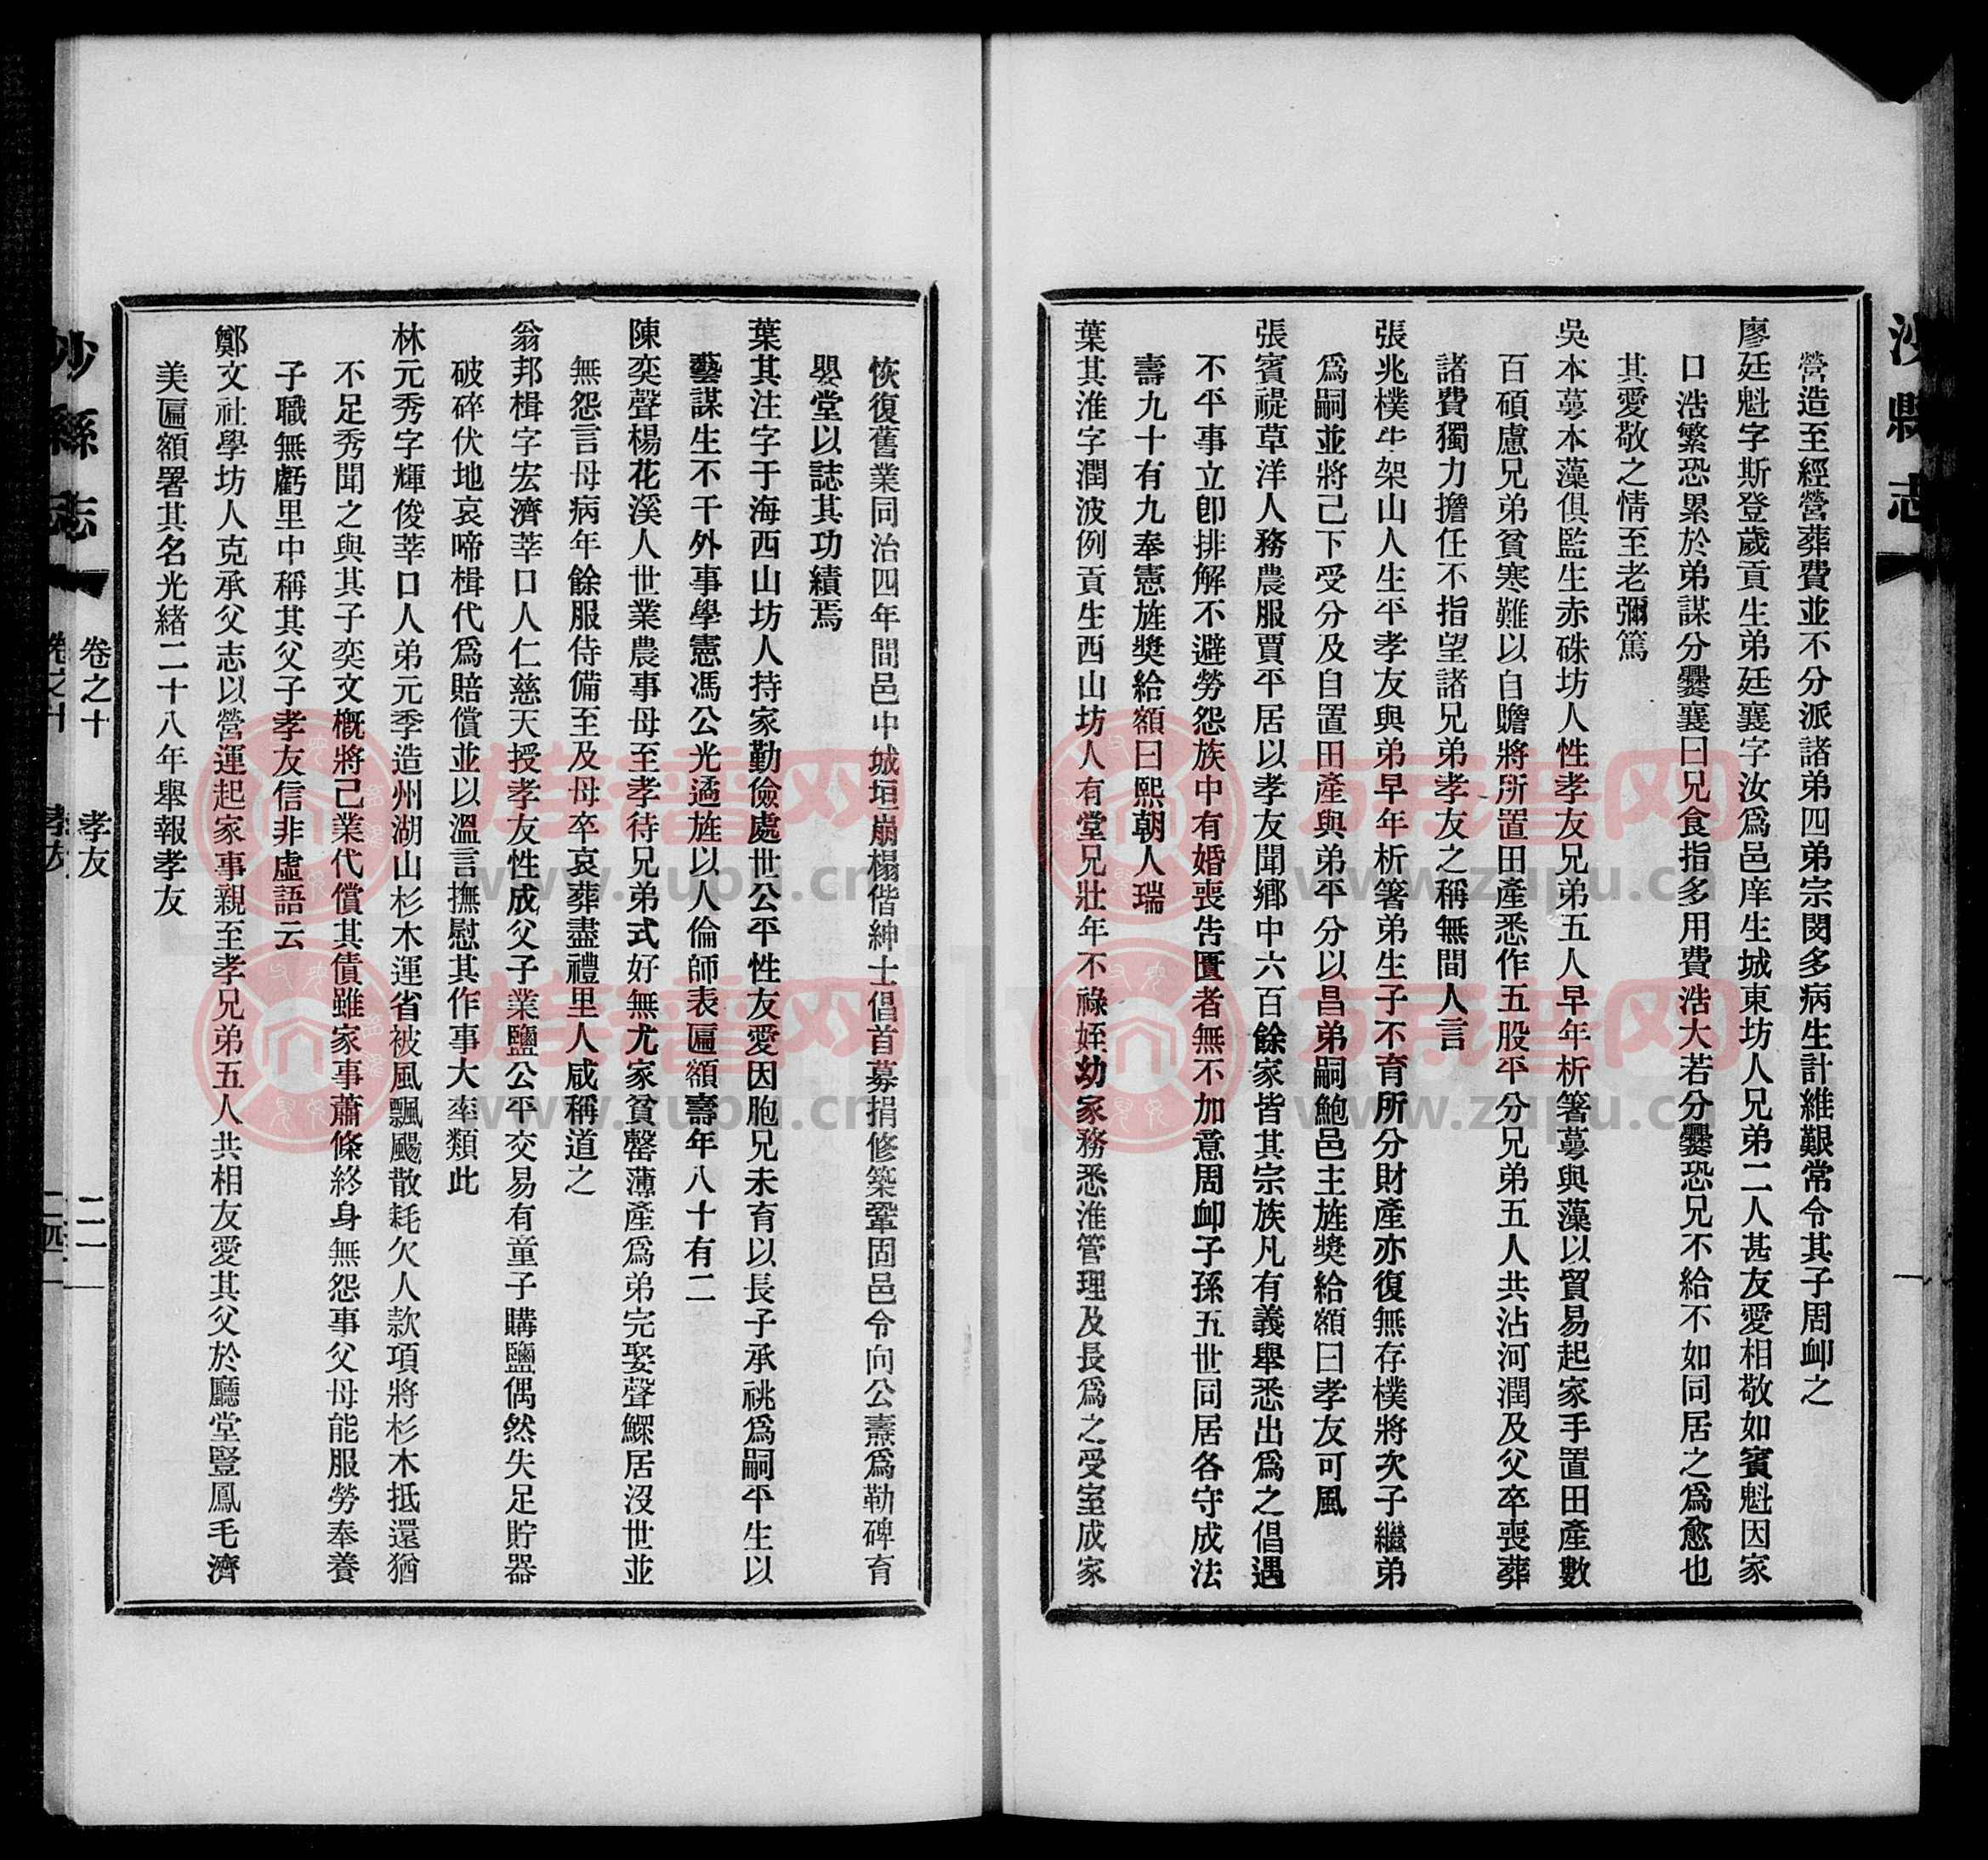 沙縣志
營造至經營葬費並不分派諸弟四弟宗閔多病生計維艱常令其子周卹之
廖廷魁字斯登歲貢生弟廷襄字汝爲邑庠生城東坊人兄弟二人甚友愛相敬如賓魁因家
口浩繁恐累於弟謀分爨襄曰兄食指多用費浩大若分爨恐兄不給不如同居之爲愈也
其愛敬之情至老彌篤
吳本蕚本藻俱監生赤硃坊人性孝友兄弟五人早年析箸蕚與藻以貿易起家手置田產數
百碩慮兄弟貧寒難以自贍將所置田產悉作五股平分兄弟五人共沾河潤及父卒喪葬
諸費獨力擔任不指望諸兄弟孝友之稱無間人言
張兆樸牛架山人生平孝友與弟早年析箸弟生子不育所分財產亦復無存樸將次子繼弟
爲嗣並將己下受分及自置田產與弟平分以昌弟嗣鮑邑主旌獎給額曰孝友可風
張賓禔草洋人務農服賈平居以孝友聞鄉中六百餘家皆其宗族凡有義舉悉出爲之倡遇
不平事立卽排解不避勞怨族中有婚喪告匱者無不加意周卹子孫五世同居各守成法
壽九十有九奉憲旌獎給額曰熙朝人瑞
葉其淮字潤波例貢生西山坊人有堂兄壯年不祿姪幼家務悉淮管理及長爲之受室成家
恢復舊業同治四年間邑中城垣崩榻偕紳士倡首募捐修築鞏固邑令向公燾爲勒碑育
嬰堂以誌其功績焉
葉其注字于海西山坊人持家勤儉處世公平性友愛因胞兄未育以長子承祧爲嗣平生以
藝謀生不干外事學憲馮公光遹旌以人倫師表匾額壽年八十有二
陳奕聲楊花溪人世業農事母至孝待兄弟式好無尤家貧罄薄產爲弟完娶聲鰥居沒世並
無怨言母病年餘服侍備至及母卒哀葬盡禮里人咸稱道之
翁邦楫字宏濟莘口人仁慈天授孝友性成父子業鹽公平交易有童子購鹽偶然失足貯器
破碎伏地哀啼楫代爲賠償並以溫言撫慰其作事大率類此
林元秀字輝俊莘口人弟元季造州湖山杉木運省被風飄颺散耗欠人款項將杉木抵還猶
不足秀聞之與其子奕文概將己業代償其債雖家事蕭條終身無怨事父母能服勞奉養
子職無虧里中稱其父子孝友信非虛語云
鄭文社學坊人克承父志以營運起家事親至孝兄弟五人共相友愛其父於廳堂豎鳳毛濟
美匾額署其名光緒二十八年舉報孝友
沙縣志
卷之十
孝友